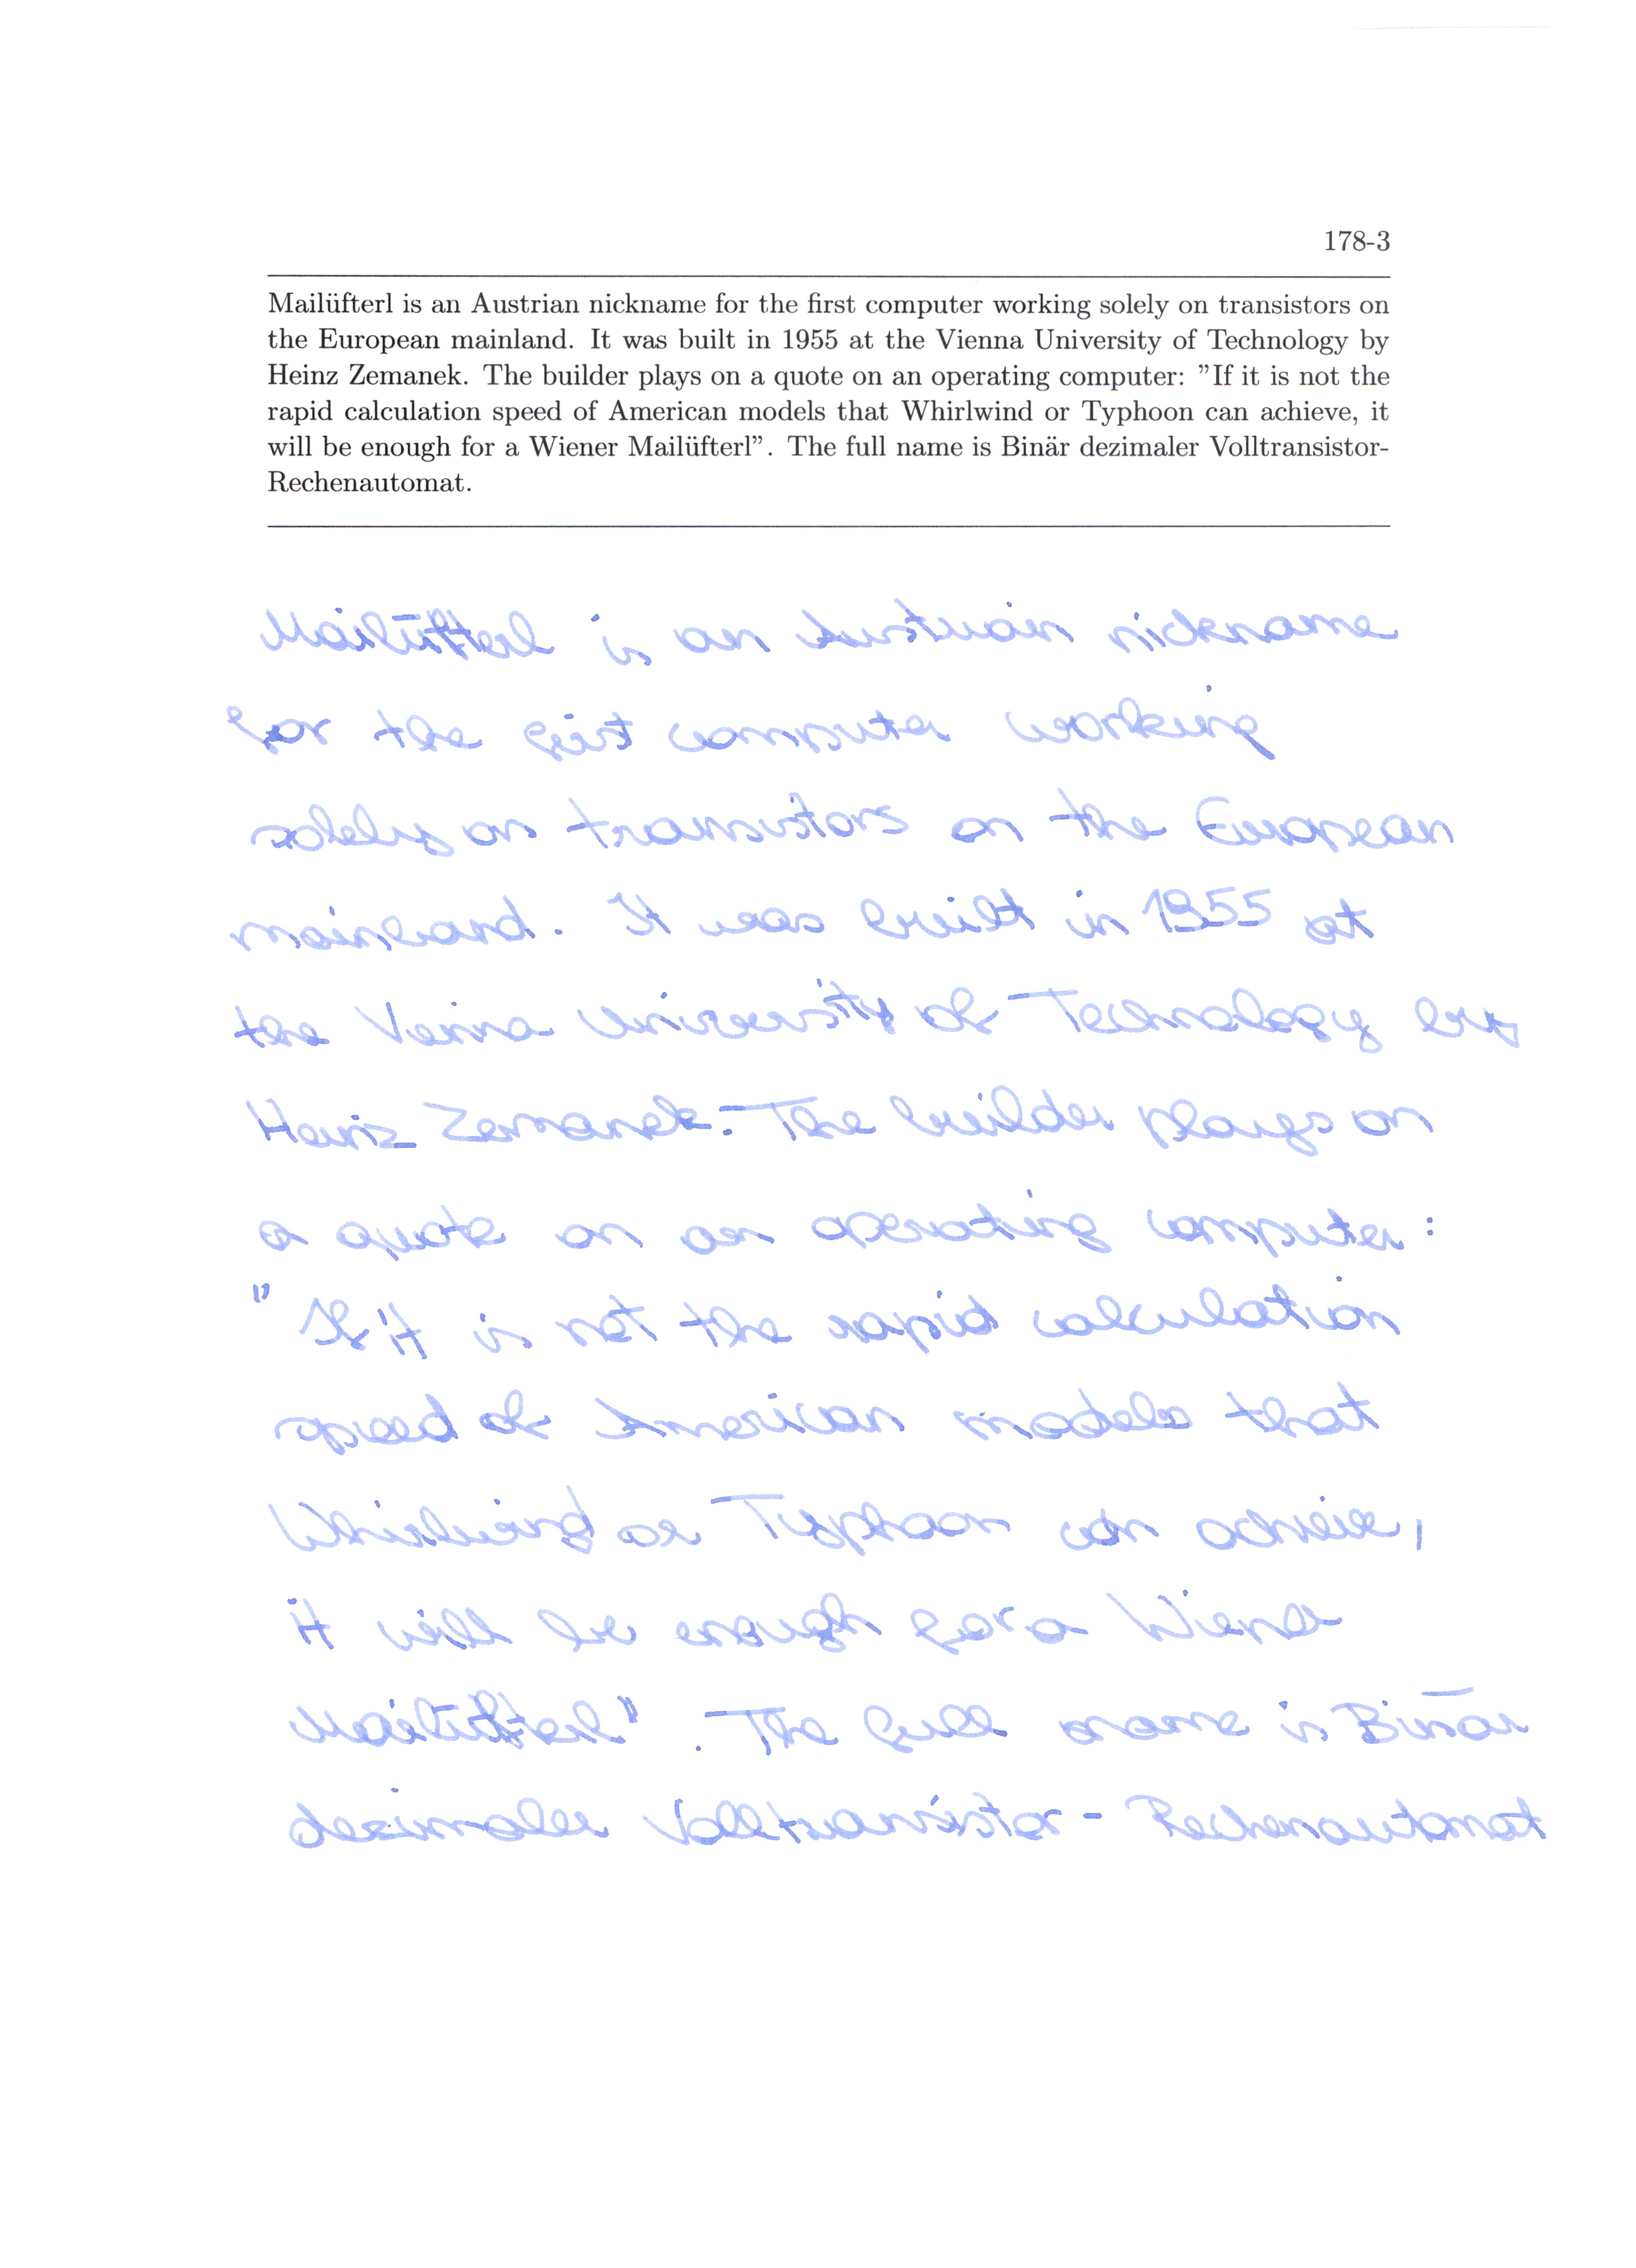 178-3
Mailüfterl is an Austrian nickname for the first computer working solely on transistors on
the European mainland. It was built in 1955 at the Vienna University of Technology by
Heinz Zemanek. The builder plays on a quote on an operating computer: "If it is not the
rapid calculation speed of American models that Whirlwind or Typhoon can achieve, it
will be enough for a Wiener Mailüfterl". The full name is Binär dezimaler Volltransistor-
Rechenautomat.
Mailüfterl is an Austrian nickname
for the first computer working
solely on transistors on the European
mainland. It was built in 1955 at
the Veinna University of Technology by
Heinz Zemanek. The builder plays on
a quote on an operating computer:
"If it is not the rapid calculation
speed of American models that
Whirlwind or Typhoon can achieve,
it will be enough for a Wiener
Mailüfterl". The full name is Binär
dezimaler Volltransistor-Rechenautomat